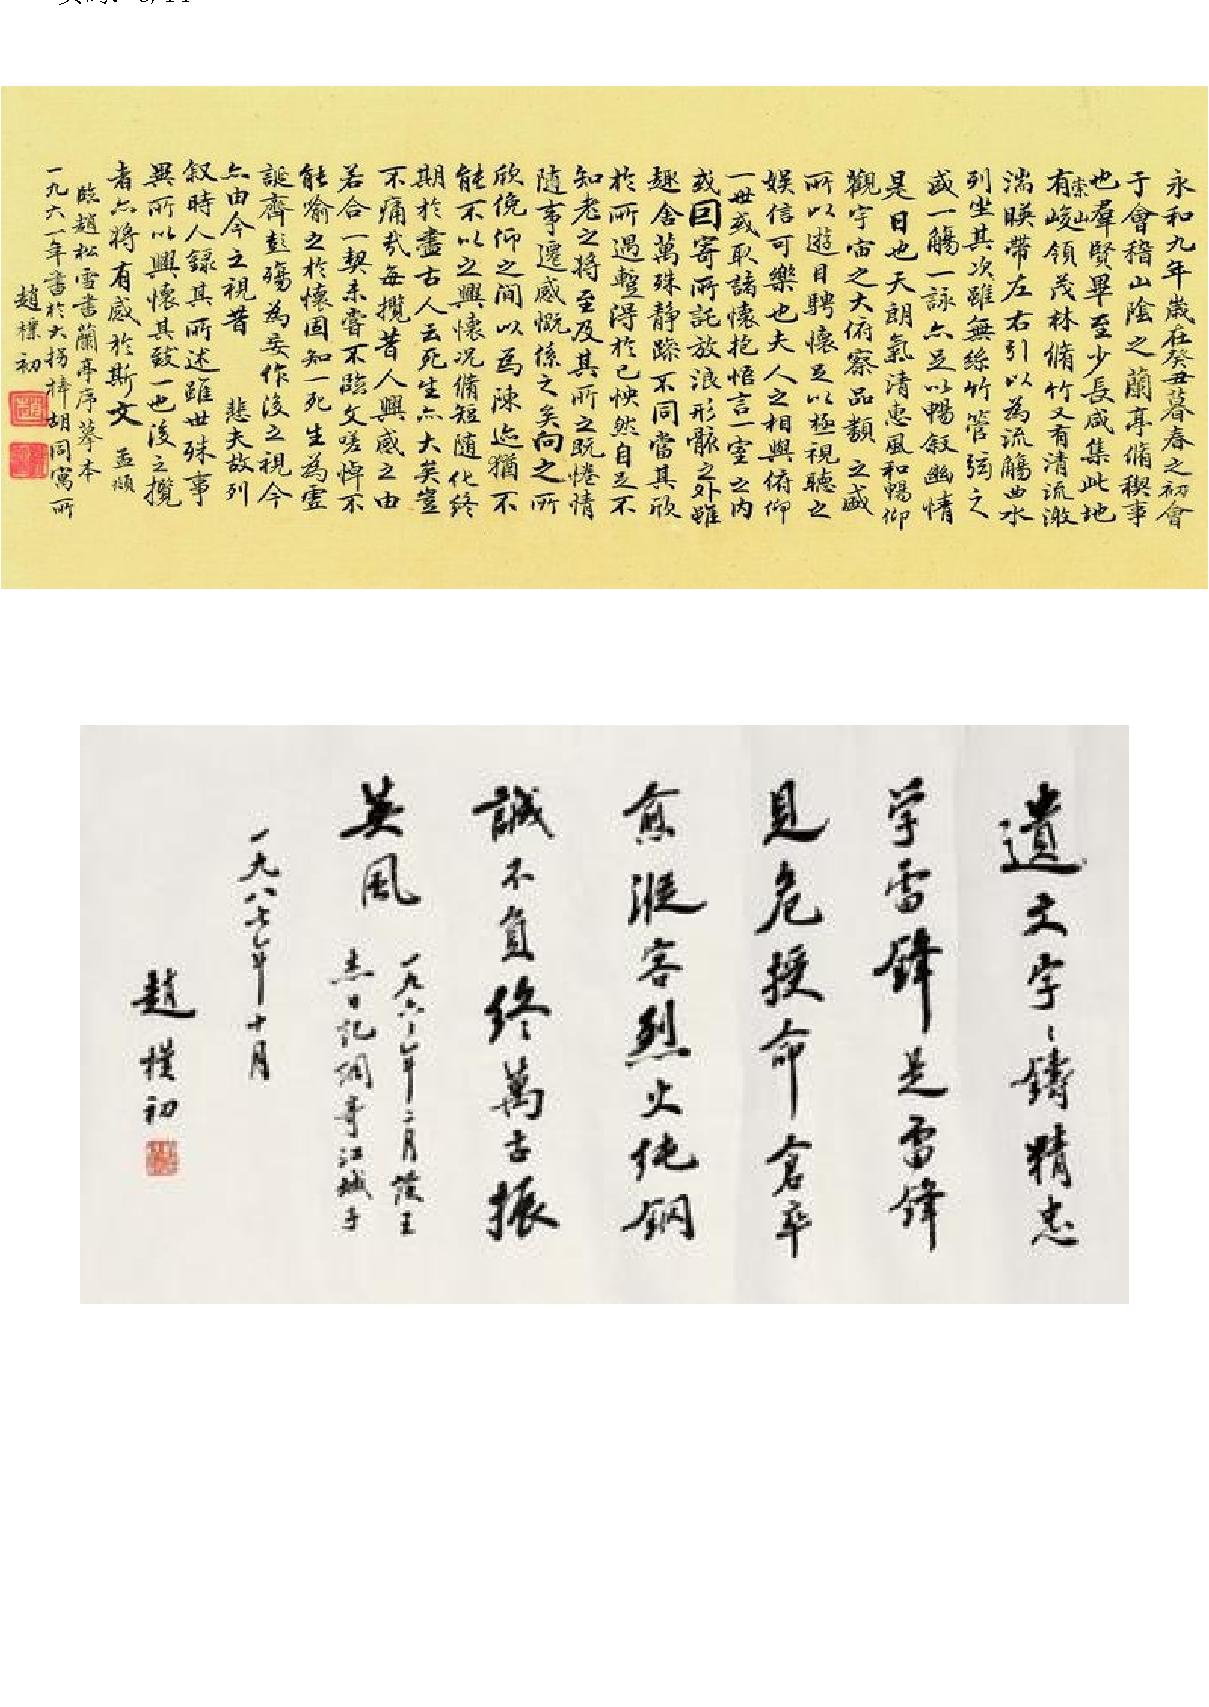 永和九年歲在癸丑暮春之初會
于會稽山陰之蘭亭脩稧事
也羣賢畢至少長咸集此地
有崇山峻領茂林脩竹又有清流激
湍暎帶左右引以為流觴曲水
列坐其次雖無絲竹管弦之
盛一觴一詠亦足以暢敘幽情
是日也天朗氣清惠風和暢仰
觀宇宙之大俯察品類之盛
所以遊目騁懷足以極視聽之
娛信可樂也夫人之相與俯仰
一世或取諸懷抱悟言一室之內
或因寄所託放浪形骸之外雖
趣舍萬殊靜躁不同當其欣
於所遇暫得於己怏然自足不
知老之將至及其所之既惓情
隨事遷感慨係之矣向之所
欣俛仰之間以為陳迹猶不
能不以之興懷況脩短隨化終
期於盡古人云死生亦大矣豈
不痛哉每攬昔人興感之由
若合一契未嘗不臨文嗟悼不
能喻之於懷固知一死生為虛
誕齊彭殤為妄作後之視今
亦由今之視昔 悲夫故列
敘時人錄其所述雖世殊事
異所以興懷其致一也後之攬
者亦將有感於斯文 孟頫
臨趙松雪書蘭亭序摹本
一九六一年書於大拐棒胡同寓所
趙樸初
遺文字〻鑄精忠
学雷鋒是雷鋒
見危授命倉卒
愈從容烈火純鋼
誠不負終萬古振
英風
一九六〻年二月讀王
杰日記調寄江城子
一九八七年十月
趙樸初